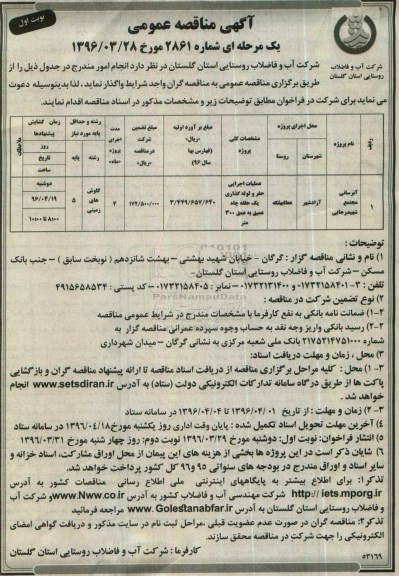 نوبت اول
آگهی مناقصه عمومی
یک مرحله ای شماره ۲۸۶۱ مورخ ۱۳۹۶/۰۳/۲۸
شرکت آب و فاضلاب
روستایی استان گلستان
شرکت آب و فاضلاب روستایی استان گلستان در نظر دارد انجام امور مندرج در جدول ذیل را از
طریق برگزاری مناقصه عمومی به مناقصه گران واجد شرایط واگذار نماید، لذا بدینوسیله دعوت
می نماید برای شرکت در فراخوان مطابق توضیحات زیر و مشخصات مذکور در اسناد مناقصه اقدام نمایند.
ردیف
نام پروژه
محل اجرای پروژه
شهرستان
روستا
مشخصات کلی پروژه
مبلغ برآورد اولیه «ریال» (فهارس بها سال ۹۶)
مبلغ تضمین شرکت درمناقصه «ریال»
مدت اجرای پروژه «ماه»
رشته و حداقل پایه مورد نیاز
رشته
پایه
زمان گشایش پیشنهادها
روز
تاریخ
ساعت
ملاحظات
۱
آبرسانی مجتمع شهیدرجایی
آزادشهر
عملیات اجرایی حفر و لوله گذاری یک حلقه چاه عمیق به عمق ۳۰۰ متر
۳/۴۴۹/۶۵۷/۶۴۰
۱۷۲/۵۰۰/۰۰۰
۴
کاوش های زمینی
۵
دوشنبه
۹۶/۰۴/۱۹
توضیحات :
۱) نام و نشانی مناقصه گزار : گرگان - خیابان شهید بهشتی - بهشت شانزدهم ( نوبخت سابق ) - جنب بانک
مسکن - شرکت آب و فاضلاب روستایی استان گلستان-
تلفن : ۳-۰۱۷۳۲۱۵۸۴۰۱ و ۰۱۷۳۲۱۳۱۴۰۰ - نمابر: ۰۱۷۳۲۱۵۸۴۰۵ - کد پستی : ۴۹۱۵۶۵۸۵۳۴
۲) نوع تضمین شرکت در مناقصه :
۲-۱) ضمانت نامه بانکی به نفع کارفرما با مشخصات مندرج در شرایط عمومی مناقصه
۲-۲) رسید بانکی واریز وجه نقد به حساب وجوه سپرده عمرانی مناقصه گزار به
شماره ۲۱۷۵۲۱۴۷۵۱۰۰۰ بانک ملی شعبه مرکزی به نشانی گرگان - میدان شهرداری
۳) محل ، زمان و مهلت دریافت اسناد:
۳-۱) محل : کلیه مراحل برگزاری مناقصه از دریافت اسناد مناقصه تا ارائه پیشنهاد مناقصه گران و بازگشایی
پاکت ها از طریق درگاه سامانه تدارکات الکترونیکی دولت (ستاد) به آدرس www.setsdiran.ir انجام
خواهد شد .
۳-۲) زمان و مهلت : از تاریخ ۱۳۹۶/۰۴/۰۱ تا ۱۳۹۶/۰۴/۰۴ در سامانه ستاد
۴) آخرین مهلت تحویل اسناد تکمیل شده : پایان وقت اداری روز یکشنبه مورخ ۱۳۹۶/۰۴/۱۸ در سامانه ستاد
۵) انتشار فراخوان: نوبت اول: دوشنبه مورخ ۱۳۹۶/۰۳/۲۹ نوبت دوم: روز چهار شنبه مورخ ۱۳۹۶/۰۳/۳۱
۶) شایان ذکر است در این پروژه ها بخشی از هزینه های این پیمان از محل اوراق مشارکت، اسناد خزانه و
سایر اسناد و اوراق مندرج در بودجه های سنواتی ۹۵ و ۹۶ کل کشور پرداخت خواهد شد.
تذکر۱: برای اطلاع بیشتر به پایگاههای اینترنتی ملی اطلاع رسانی مناقصات کشور به آدرس
http:// iets.mporg.ir شرکت مهندسی آب و فاضلاب کشور به آدرس www.Nww.co.ir و شرکت آب
و فاضلاب روستایی استان گلستان به آدرس www.Golestanabfar.ir مراجعه فرمائید
تذکر۲: مناقصه گران در صورت عدم عضویت قبلی ،مراحل ثبت نام در سایت مذکور و دریافت گواهی امضای
الکترونیکی را جهت شرکت در مناقصه محقق سازند.
کارفرما : شرکت آب و فاضلاب روستایی استان گلستان
۵۳۱۶۹